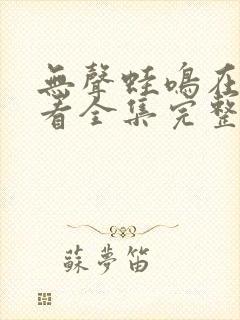 無聲蛙鳴在
看全集完整
蘇夢笛